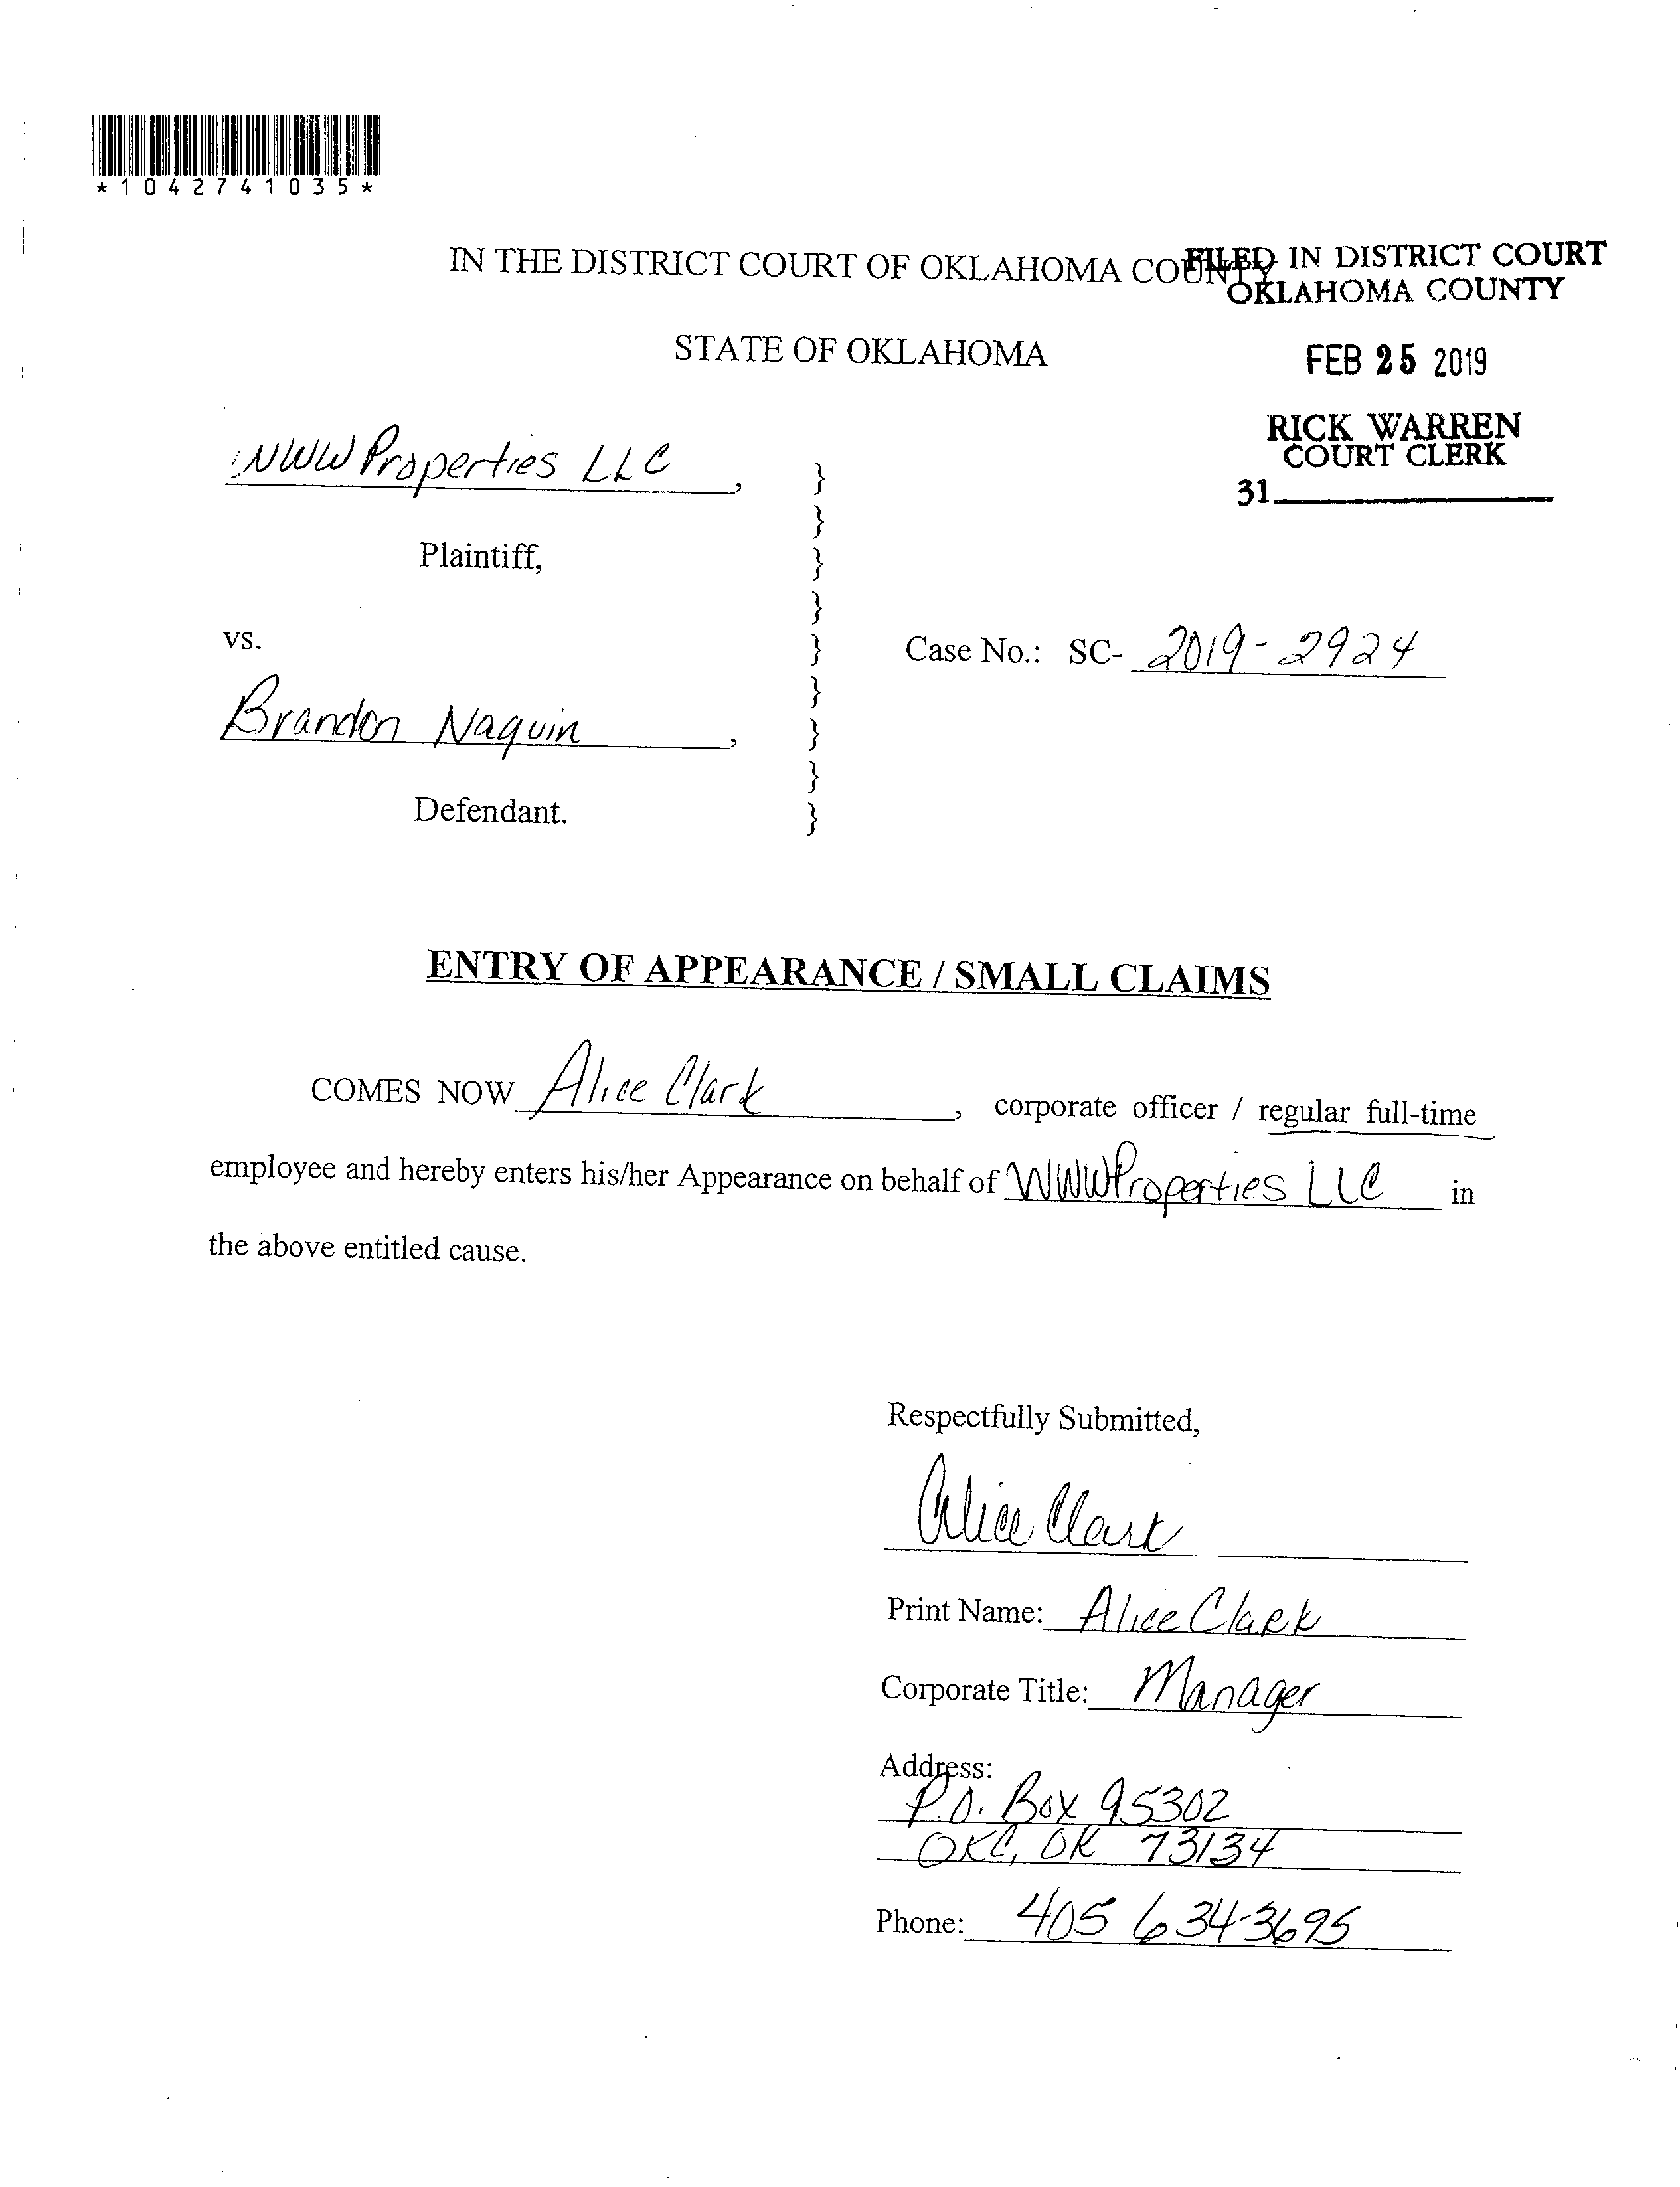 *1042741035*
IN THE DISTRICT COURT OF OKLAHOMA COUNTY
FILED IN DISTRICT COURT
OKLAHOMA COUNTY
STATE OF OKLAHOMA
FEB 25 2019
RICK WARREN
COURT CLERK
31
WWW Properties LLC,
Plaintiff,
vs.
Case No.: SC- 2019-2924
Brandon Naquin,
Defendant.
}
}
}
}
}
}
}
}
}
ENTRY OF APPEARANCE / SMALL CLAIMS
COMES NOW Alice Clark, corporate officer / regular full-time
employee and hereby enters his/her Appearance on behalf of WWWProperties LLC in
the above entitled cause.
Respectfully Submitted,
Alice Clark
Print Name: Alice Clark
Corporate Title: Manager
Address:
P.O. Box 95302
OKC, OK 73134
Phone: 405 634-3695